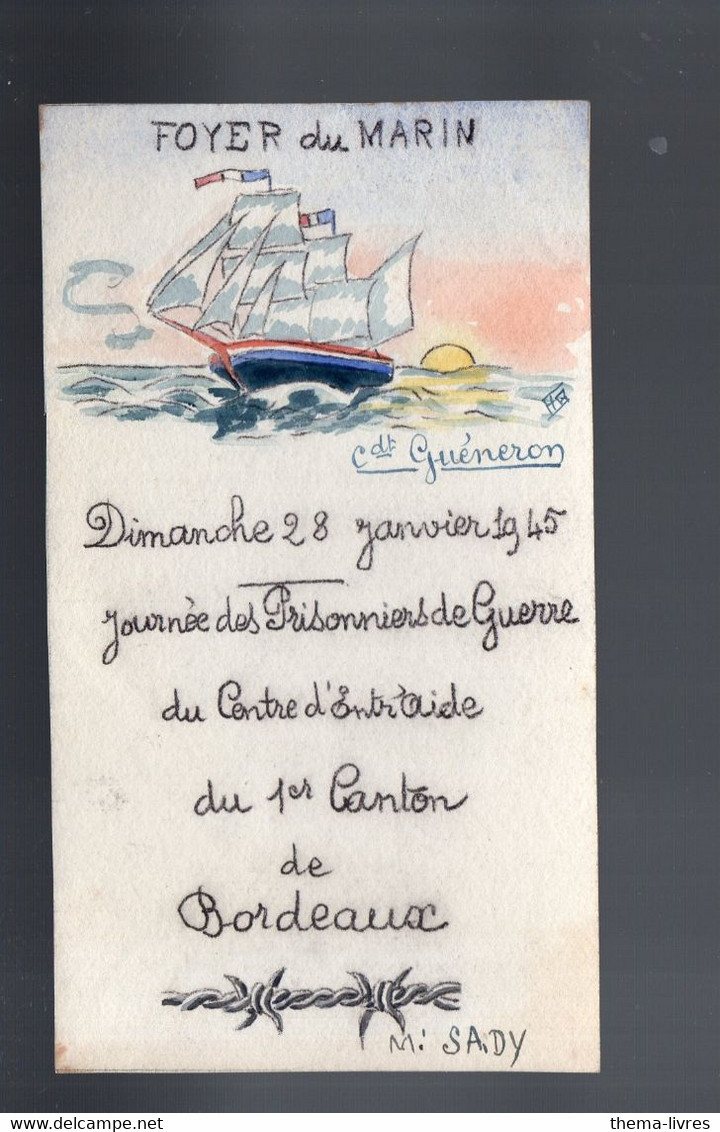 FOYER du MARIN
Cdt Guéneron
Dimanche 28 janvier 1945
journée des Prisonniers de Guerre
du Centre d'Entr'aide
du 1er Canton
de
Bordeaux
M: SADY
delcampe.net
thema-livres